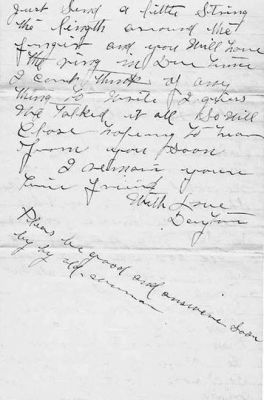 just send a little string
the length arround the
finger and you will have
the ring in due time
I cant think of any
thing to write I guess
We talked it all so will
Close hoping to hear
from you soon
I remain your
true friend
With Love
Dayton
Pleas be good and answere soon
by by